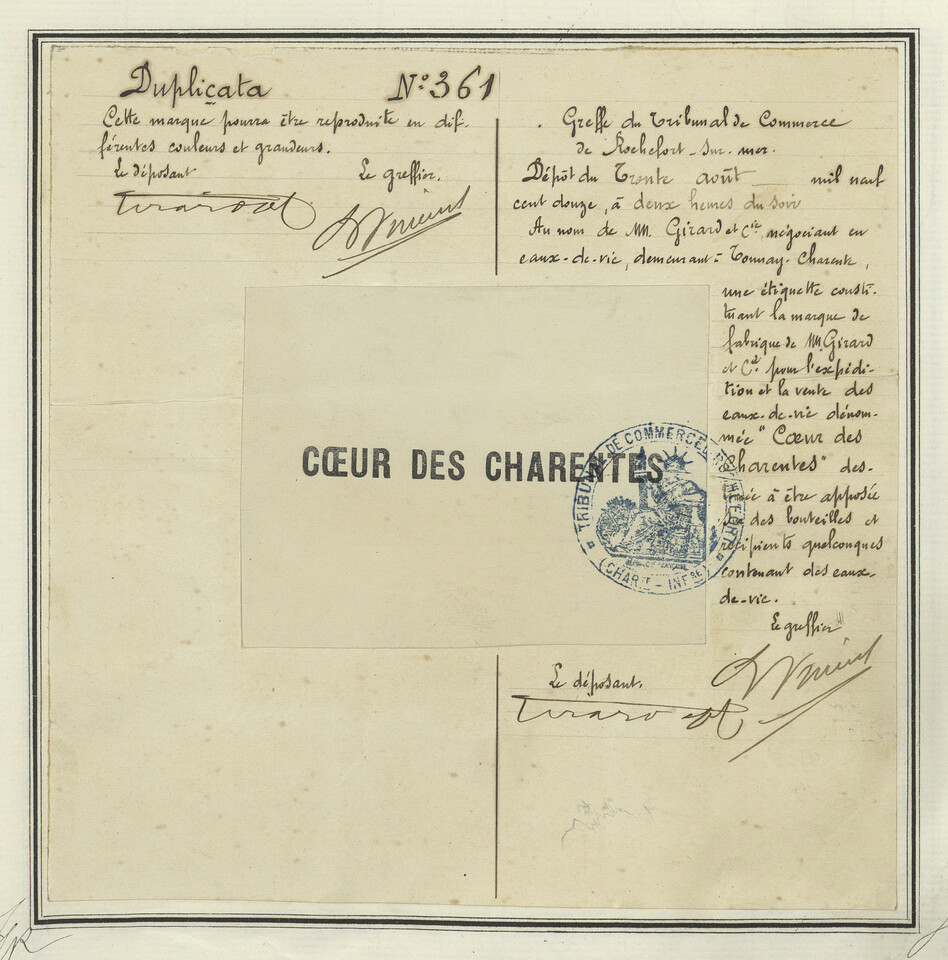 Duplicata N° 361
Cette marque pourra être reproduite en dif-
férentes couleurs et grandeurs.
Le déposant Le greffier.
Greffe du Tribunal de Commerce
de Rochefort-sur-mer.
Dépôt du Trente août mil neuf
cent douze, à deux heures du soir
Au nom de MM. Girard et Cie, négociant en
eaux-de-vie, demeurant à Tonnay-Charente,
une étiquette consti-
tuant la marque de
fabrique de MM. Girard
et Cie pour l'expédi-
tion et la vente des
eaux-de-vie dénom-
mée "Cœur des
Charentes" des-
tinée à être apposée
sur des bouteilles et
récipients quelconques
contenant des eaux-
de-vie.
Le greffier
Le déposant.
CŒUR DES CHARENTES
TRIBUNAL DE COMMERCE DE ROCHEFORT
(CHARTE - INFRE)
RÉPUBLIQUE FRANÇAISE